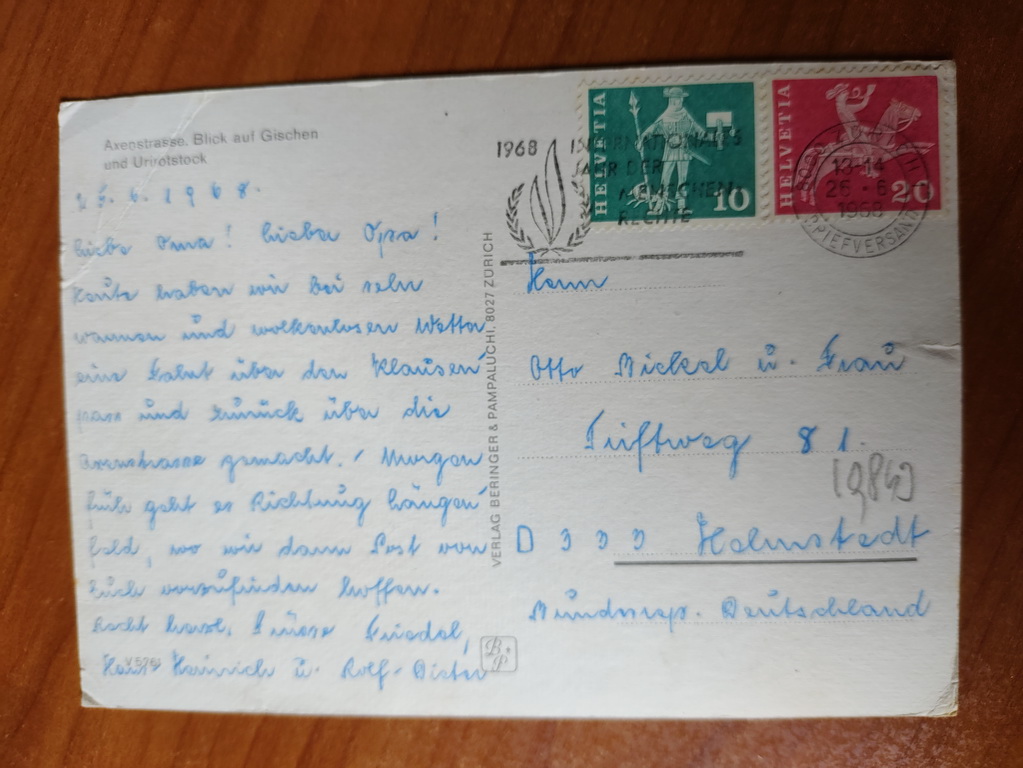 Axenstrasse. Blick auf Gischen
und Urirotstock
25. 6. 1968.
Liebe Oma! Lieber Opa!
Heute haben wir bei sehr
warmen und wolkenlosen Wetter
eine Fahrt über den Klausen-
pass und zurück über die
Axenstrasse gemacht. Morgen
früh geht es Richtung Längen-
feld, wo wir dann Post von
Euch vorzufinden hoffen.
Recht herzl. Grüsse Friedel,
Hans Heinrich u. Rolf-Dieter
V 5761
VERLAG BERINGER & PAMPALUCHI, 8027 ZÜRICH
B+P
1968 INTERNATIONALES
JAHR DER
MENSCHEN-
RECHTE
HELVETIA
10
HELVETIA
20
13-14
25.6.
1968
BRIEFVERSAND
Herrn
Otto Nickel u. Frau
81.
D 333 Helmstedt
Bundesrep. Deutschland